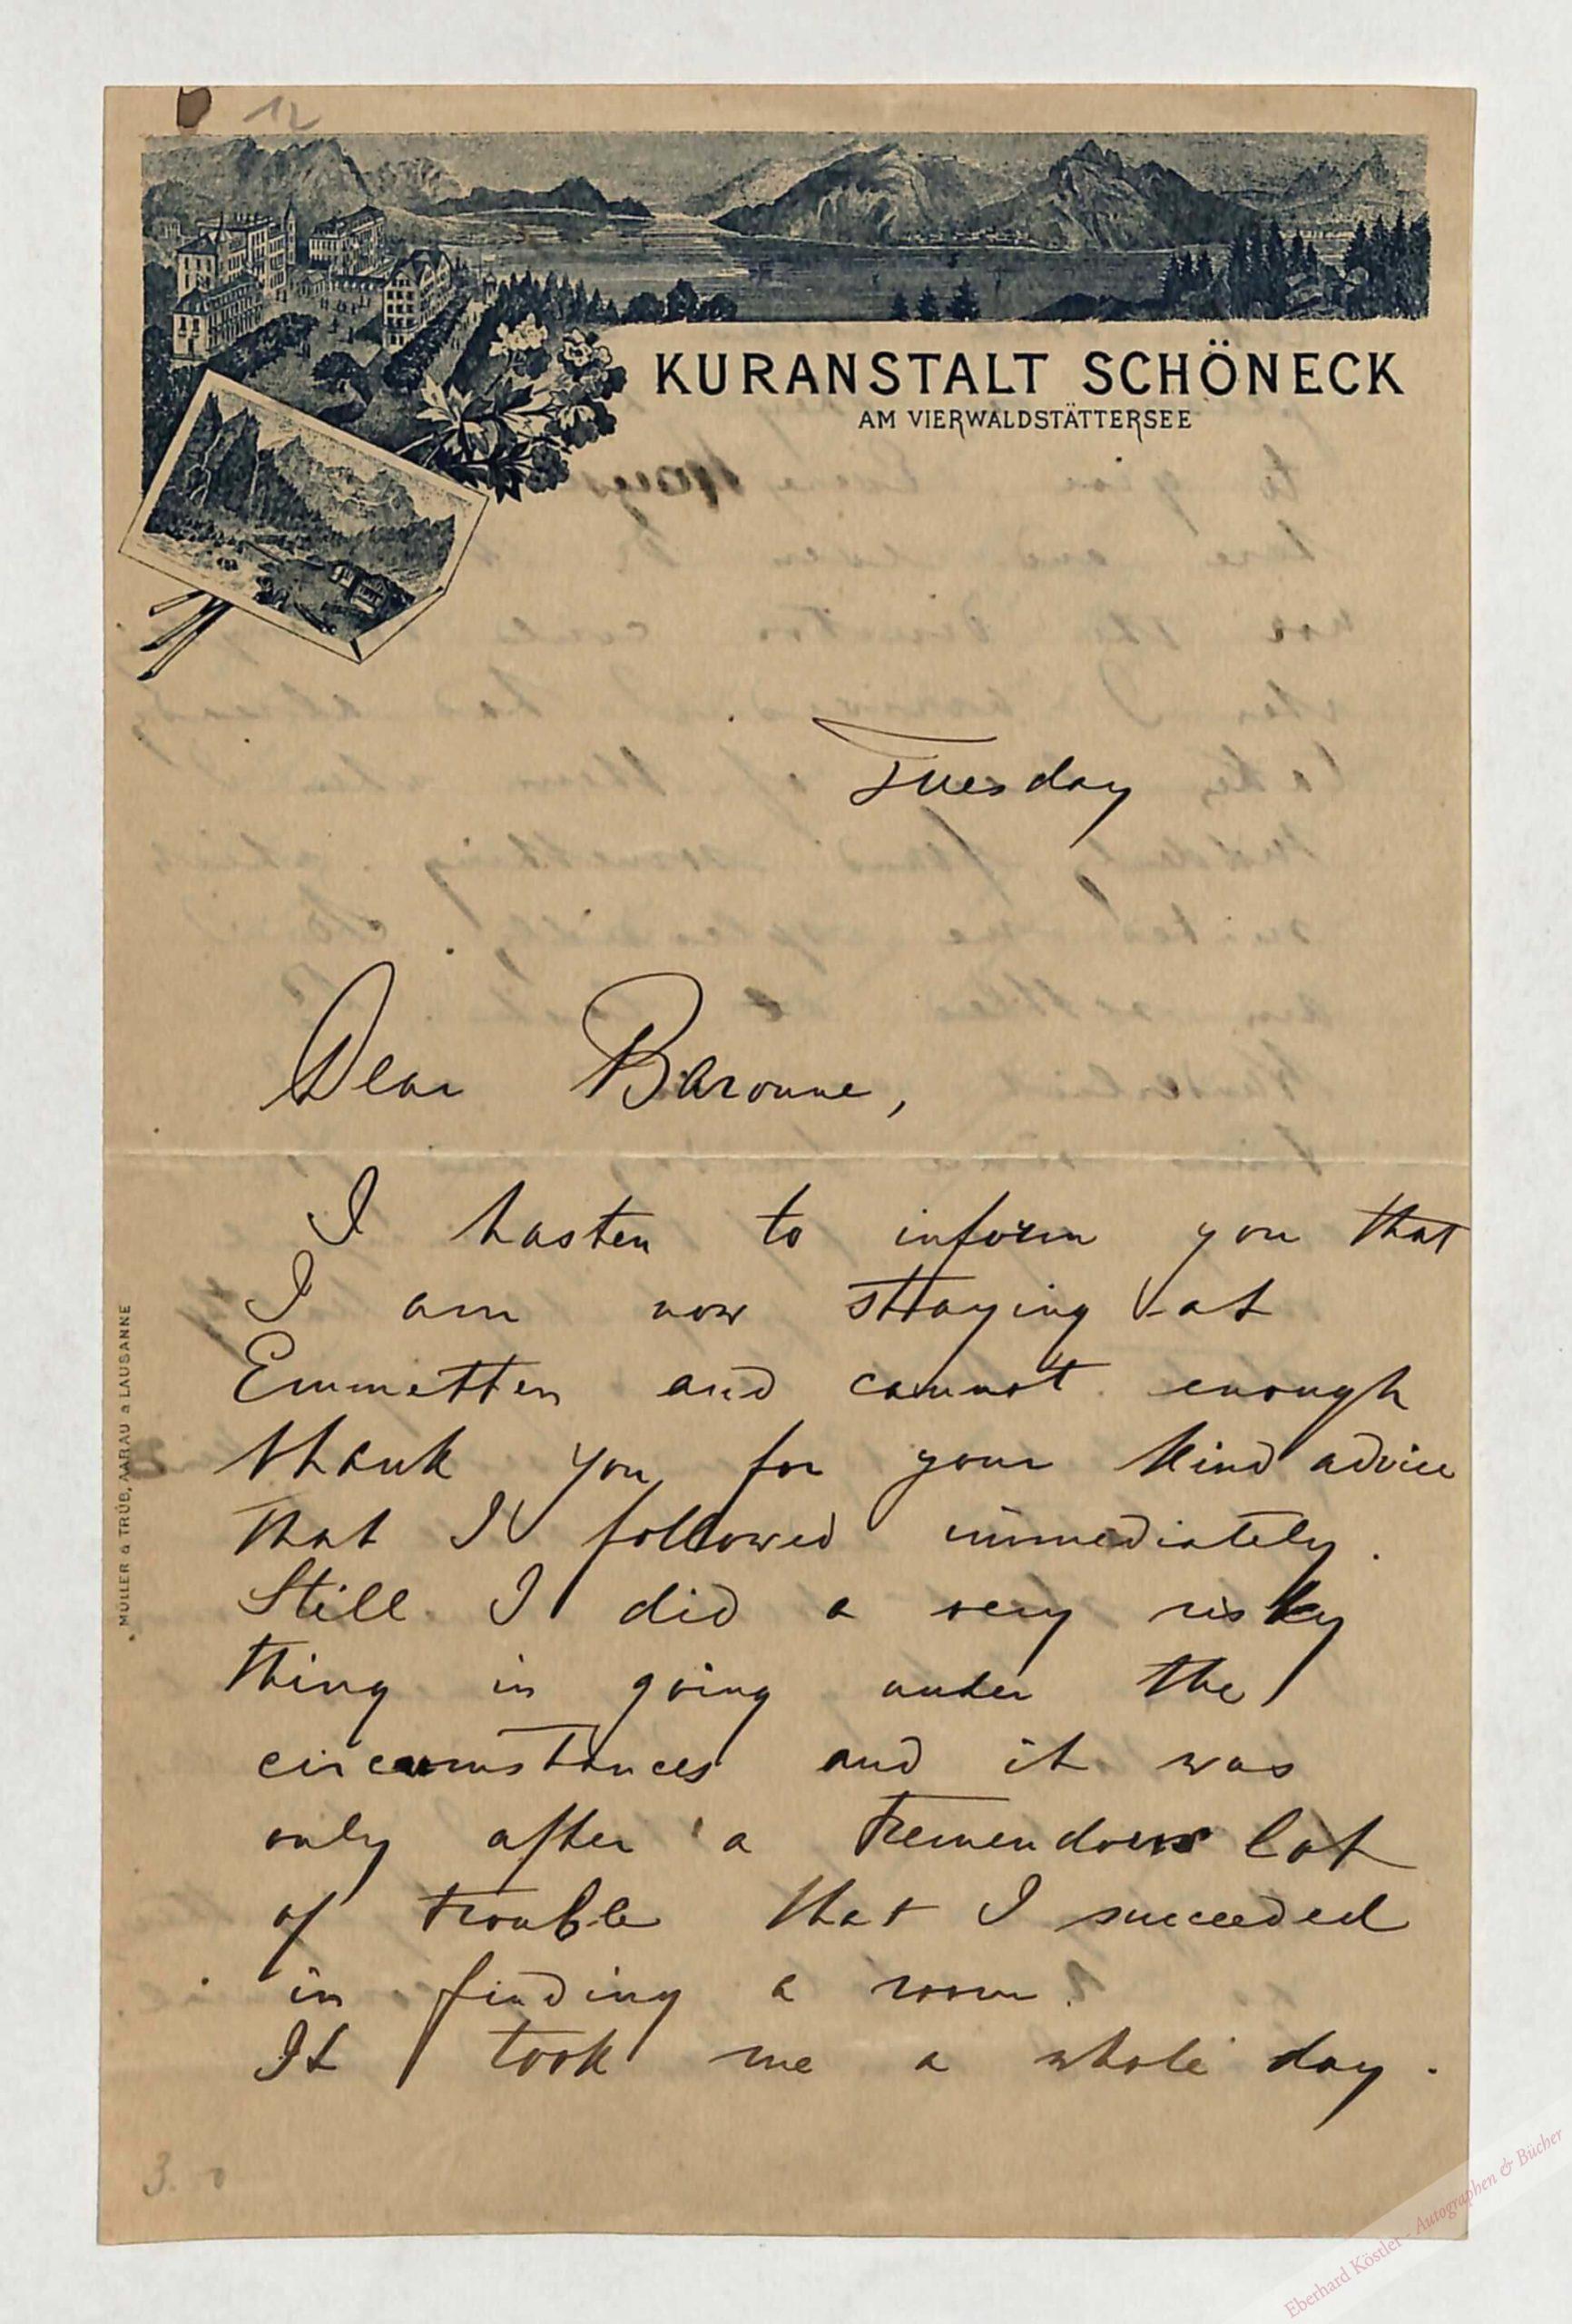 12
KURANSTALT SCHÖNECK
AM VIERWALDSTÄTTERSEE
Tuesday
Dear Baronne,
I hasten to inform you that
I am now staying at
Emmetten and cannot enough
thank you for your kind advice
that I followed immediately.
Still I did a very risky
thing in going under the
circumstances and it was
only after a tremendous lot
of trouble that I succeeded
in finding a room.
It took me a whole day.
MÜLLER & TRÜB, AARAU & LAUSANNE
Eberhard Köstler - Autographen & Bücher